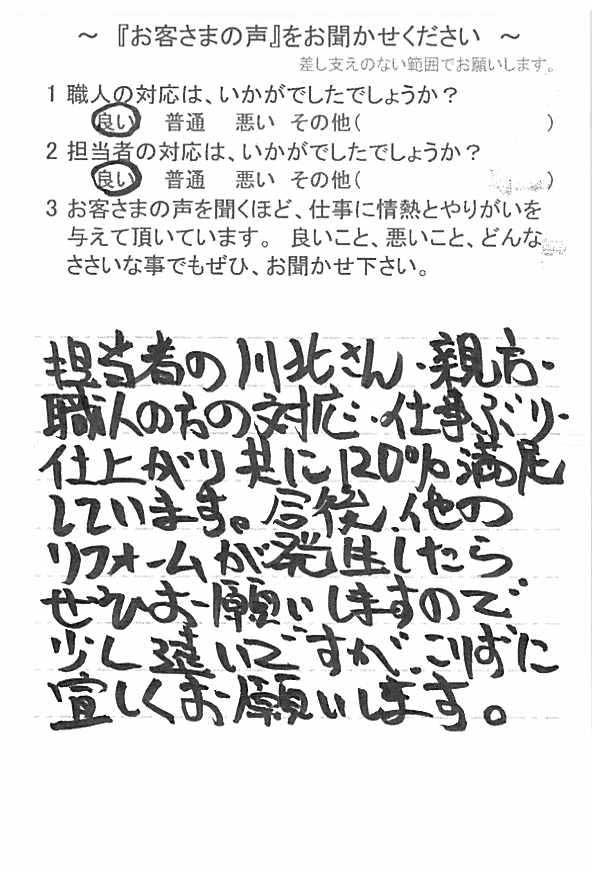 ～ 『お客さまの声』をお聞かせください ～
差し支えのない範囲でお願いします。
1 職人の対応は、いかがでしたでしょうか？
良い 普通 悪い その他( )
2 担当者の対応は、いかがでしたでしょうか？
良い 普通 悪い その他( )
3 お客さまの声を聞くほど、仕事に情熱とやりがいを
与えて頂いています。 良いこと、悪いこと、どんな
ささいな事でもぜひ、お聞かせ下さい。
担当者の川北さん・親方・
職人の方の対応・仕事ぶり・
仕上がり共に120%満足
しています。今後、他の
リフォームが発生したら、
ぜひお願いしますので、
少し遠いですが、こりずに
宜しくお願いします。